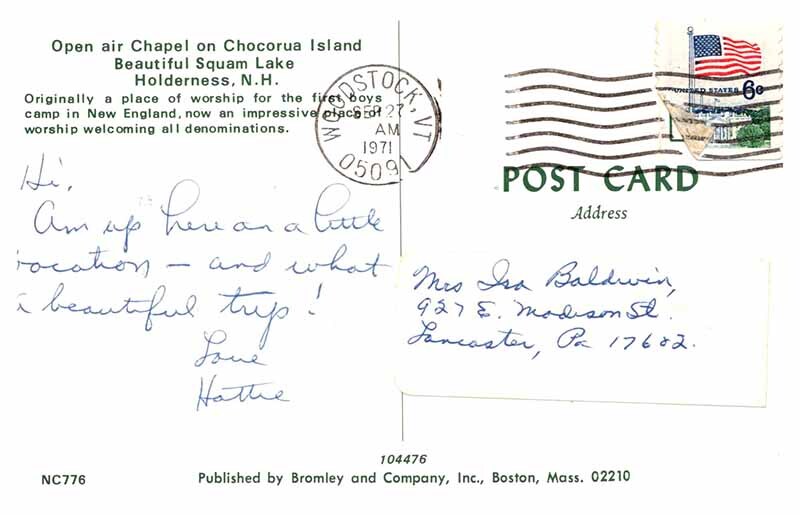 Open air Chapel on Chocorua Island
Beautiful Squam Lake
Holderness, N.H.
Originally a place of worship for the first boys
camp in New England, now an impressive place of
worship welcoming all denominations.
WOODSTOCK, VT
SEP 27
AM
1971
05091
UNITED STATES 6c
POST CARD
Address
Hi,
Am up here on a little
vacation – and what
a beautiful trip!
Love
Hattie
Mrs Isa Baldwin,
927 E. Madison St.
Lancaster, Pa 17602.
104476
NC776
Published by Bromley and Company, Inc., Boston, Mass. 02210